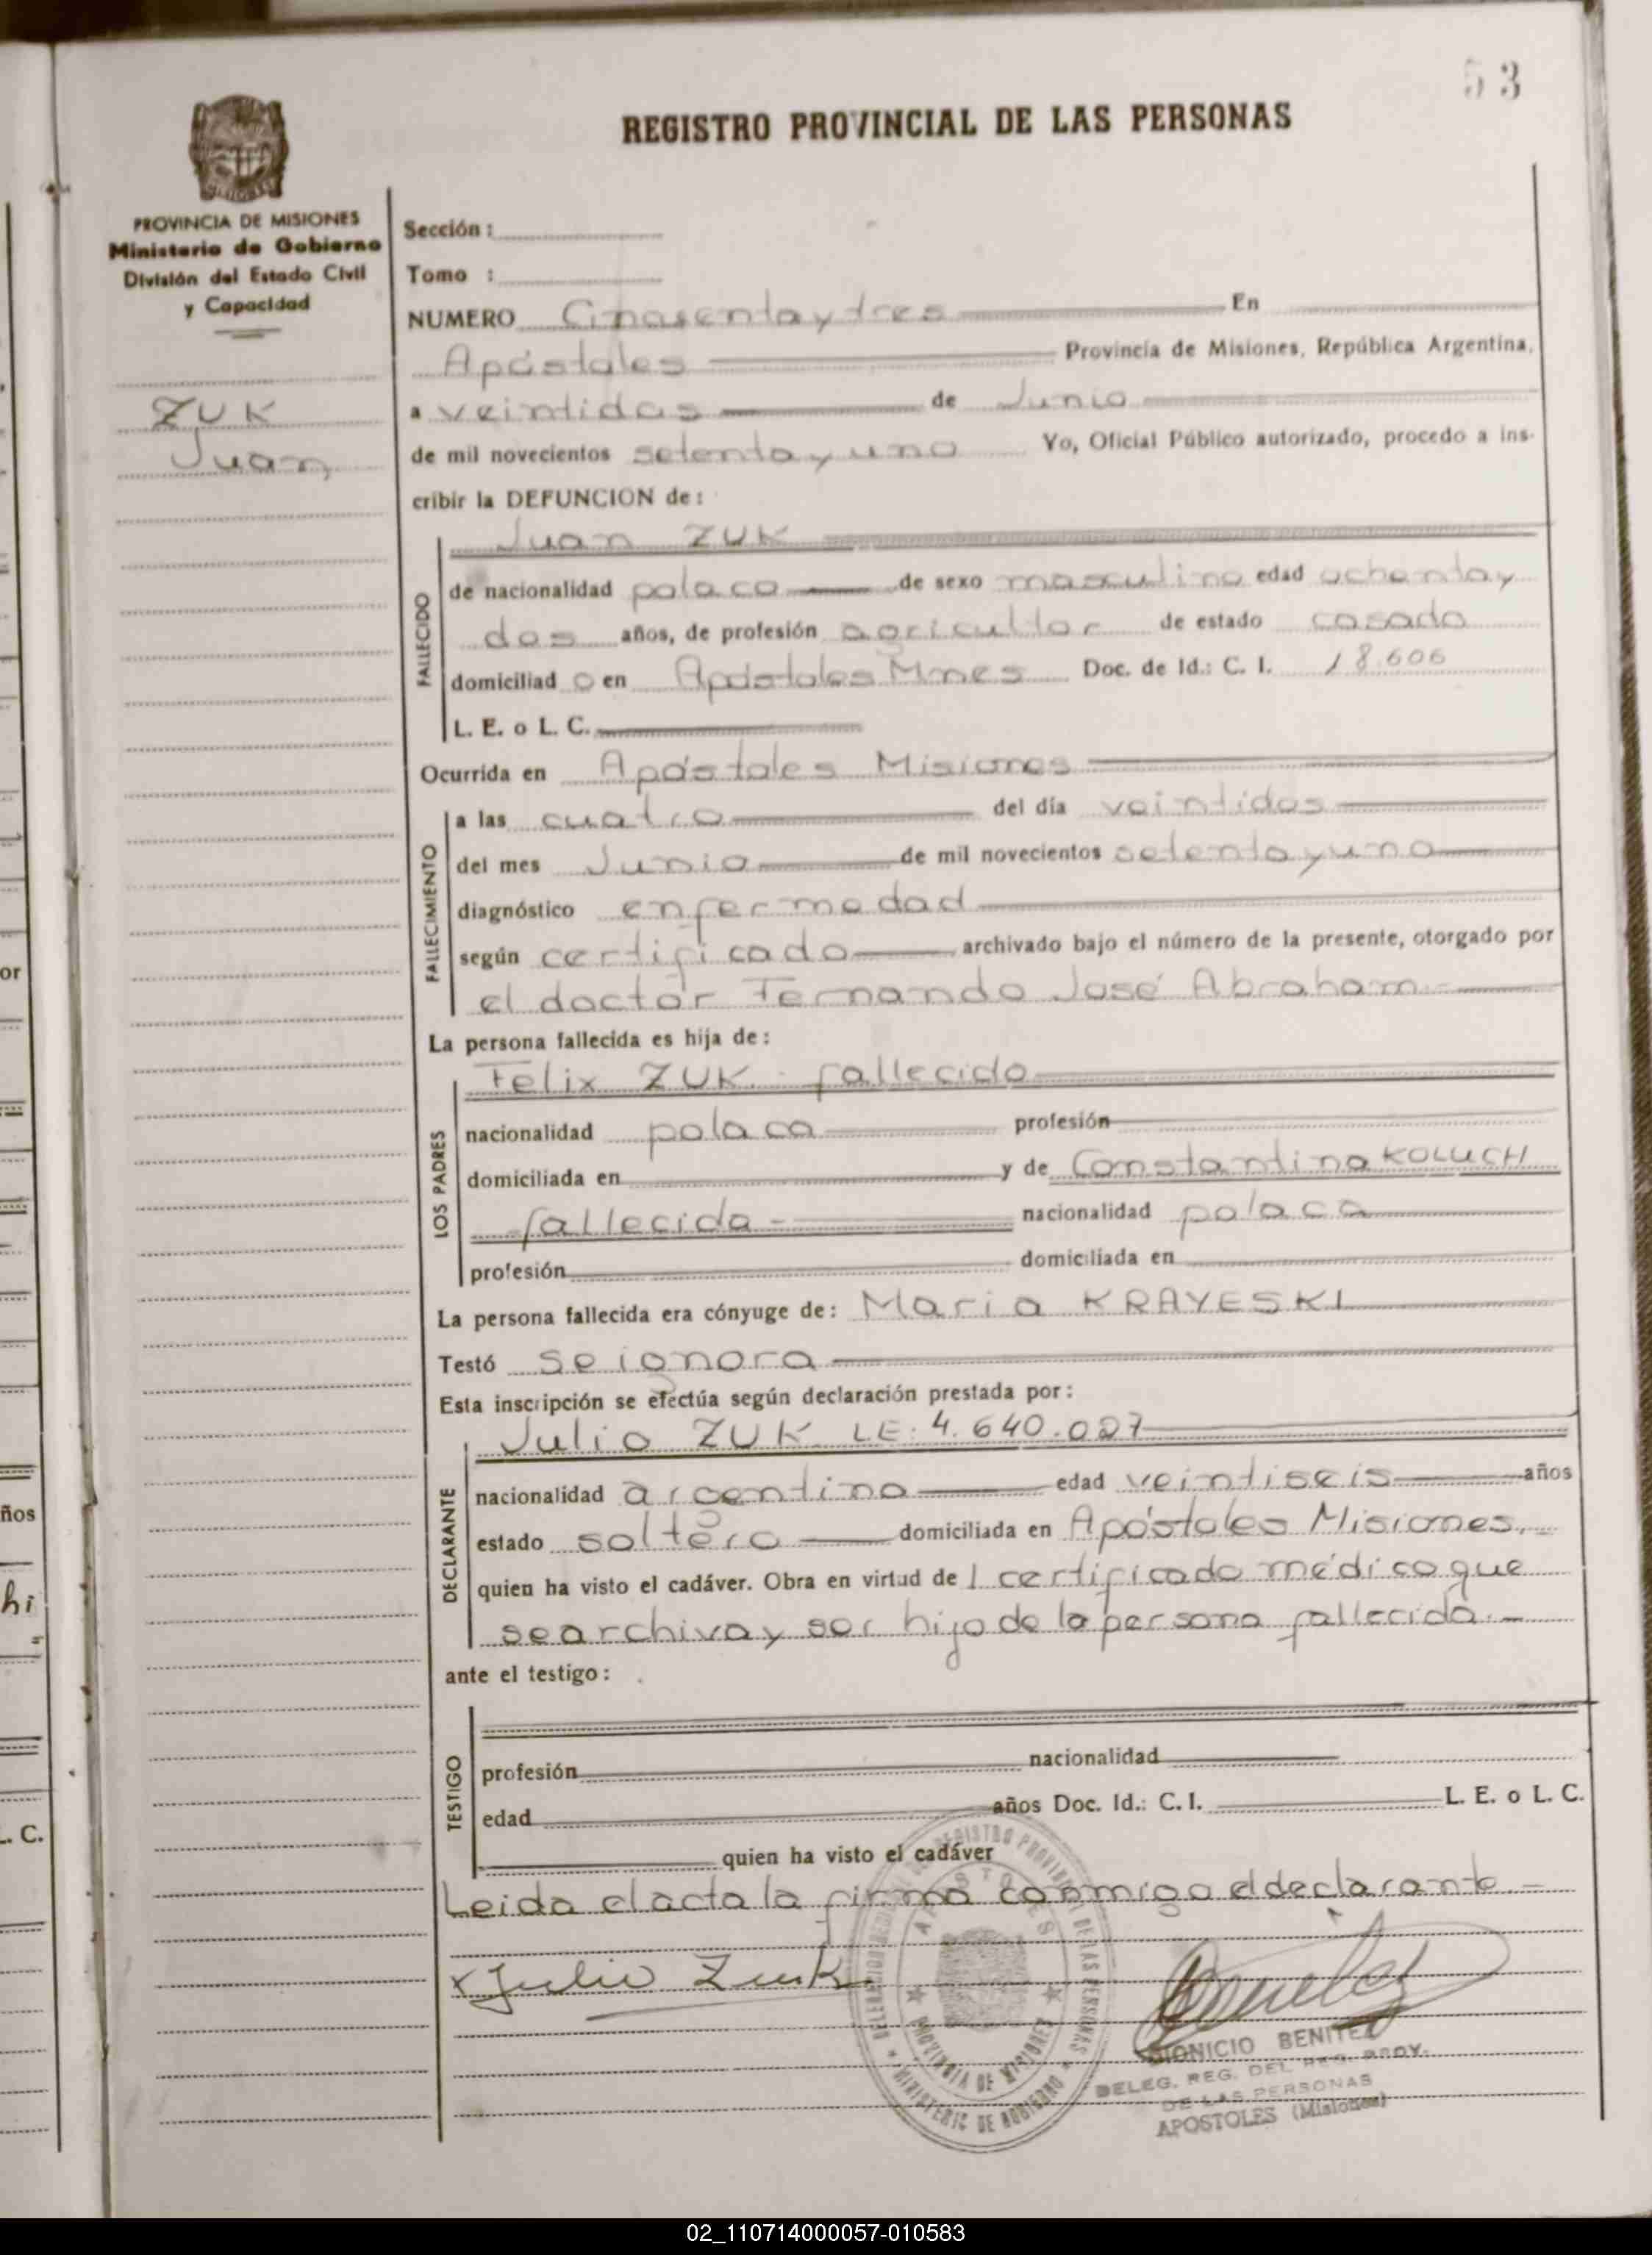 53
REGISTRO PROVINCIAL DE LAS PERSONAS
PROVINCIA DE MISIONES
Ministerio de Gobierno
División del Estado Civil
y Capacidad
ZUK
Juan
Sección :
Tomo :
NUMERO Cincuenta y tres En
Apóstoles Provincia de Misiones, República Argentina,
a veintidos de Junio
de mil novecientos setenta y uno Yo, Oficial Público autorizado, procedo a ins-
cribir la DEFUNCION de :
Juan ZUK
FALLECIDO
de nacionalidad polaco de sexo masculino edad ochenta y
dos años, de profesión agricultor de estado casado
domiciliad o en Apóstoles Mnes Doc. de Id.: C. I. 18.606
L. E. o L. C.
Ocurrida en Apóstoles Misiones
FALLECIMIENTO
a las cuatro del día veintidos
del mes Junio de mil novecientos setenta y uno
diagnóstico enfermedad
según certificado archivado bajo el número de la presente, otorgado por
el doctor Fernando José Abraham.-
La persona fallecida es hija de :
LOS PADRES
Felix ZUK. fallecido
nacionalidad polaca profesión
domiciliada en y de Constantina KOLUCH
fallecida - nacionalidad polaca
profesión domiciliada en
La persona fallecida era cónyuge de : Maria KRAYESKI
Testó se ignora
Esta inscripción se efectúa según declaración prestada por :
DECLARANTE
Julio ZUK LE: 4.640.027
nacionalidad argentino edad veintiseis años
estado soltero domiciliada en Apóstoles Misiones.
quien ha visto el cadáver. Obra en virtud de 1 certificado médico que
se archiva y ser hijo de la persona fallecida.-
ante el testigo :
TESTIGO
profesión nacionalidad
edad años Doc. Id.: C. I. L. E. o L. C.
quien ha visto el cadáver
Leida el acta la firma conmigo el declarante.-
x Julio Zuk
APOSTOLES
PROVINCIA DE MISIONES
MINISTERIO DE GOBIERNO
DIONICIO BENITEZ
DELEG. REG. DEL REG. PROV.
DE LAS PERSONAS
APOSTOLES (Misiones)
or
ños
hi
L. C.
02_110714000057-010583